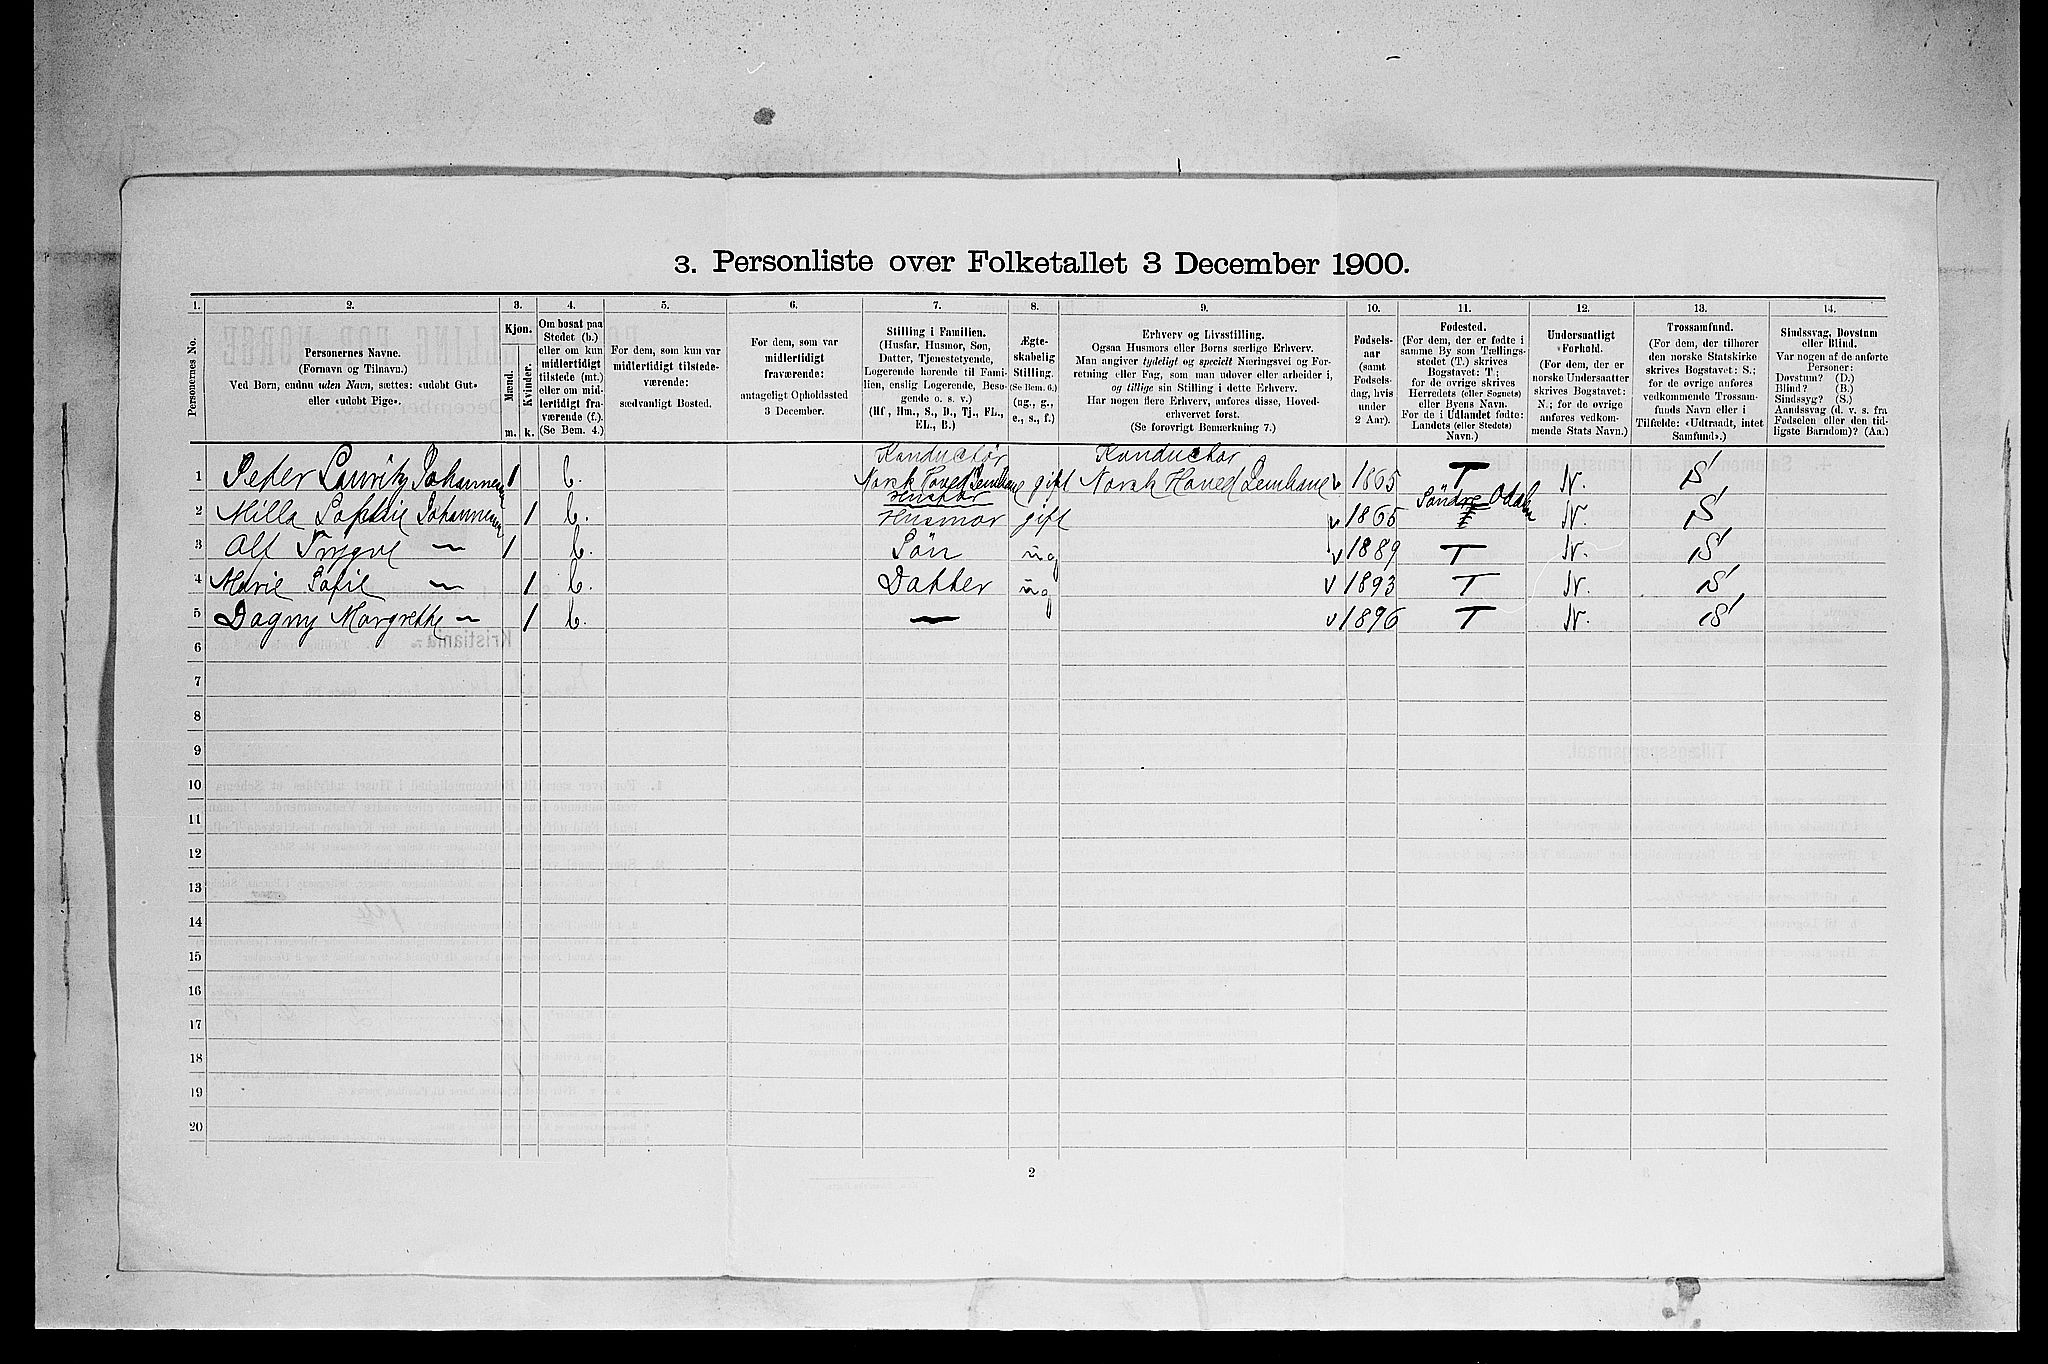 3. Personliste over Folketallet 3 December 1900.
1. 2. 3. 4. 5. 6. 7. 8. 9. 10. 11. 12. 13. 14.
Personernes No.
Personernes Navne.
(Fornavn og Tilnavn.)
Ved Børn, endnu uden Navn, sættes: «udøbt Gut»
eller «udøbt Pige».
Kjøn.
Mænd.
Kvinder.
m. k.
Om bosat paa
Stedet (b.)
eller om kun
midlertidigt
tilstede (mt.)
eller om mid-
lertidigt fra-
værende (f.).
(Se Bem. 4.)
For dem, som kun var
midlertidigt tilstede-
værende:
sædvanligt Bosted.
For dem, som var
midlertidigt
fraværende:
antageligt Opholdssted
3 December.
Stilling i Familien.
(Husfar, Husmor, Søn,
Datter, Tjenestetyende,
Logerende hørende til Fami-
lien, enslig Logerende, Besø-
gende o. s. v.)
(Hf., Hm., S., D., Tj., FL.,
EL., B.)
Ægte-
skabelig
Stilling.
(Se Bem. 6.)
(ug., g.,
e., s., f.)
Erhverv og Livsstilling.
Ogsaa Husmors eller Børns særlige Erhverv.
Man angiver tydeligt og specielt Næringsvei og For-
retning eller Fag, som man udøver eller arbeider i,
og tillige sin Stilling i dette Erhverv.
Har nogen flere Erhverv, anføres disse, Hoved-
erhvervet først.
(Se forøvrigt Bemærkning 7.)
Fødsels-
aar
(samt
Fødsels-
dag, hvis
under
2 Aar).
Fødested.
(For dem, der er fødte i
samme By som Tællings-
stedet (T.) skrives
Bogstavet: T;
for de øvrige skrives
Herredets (eller Sognets)
eller Byens Navn.
For de i Udlandet fødte:
Landets (eller Stedets)
Navn.)
Undersaatligt
Forhold.
(For dem, der er
norske Undersaatter
skrives Bogstavet:
N.; for de øvrige
anføres vedkom-
mende Stats Navn.)
Trossamfund.
(For dem, der tilhører
den norske Statskirke
skrives Bogstavet: S.;
for de øvrige anføres
vedkommende Trossam-
funds Navn eller i
Tilfælde: «Udtraadt, intet
Samfund».)
Sindssvag, Døvstum
eller Blind.
Var nogen af de anførte
Personer:
Døvstum? (D.)
Blind? (B.)
Sindssyg? (S.)
Aandssvag (d. v. s. fra
Fødselen eller den tid-
ligste Barndom)? (Aa.)
Konductør Konductør
1 Peter Lauritz Johannesen 1 b. Norsk Hoved Jernbane gift Norsk Hoved Jernbane 1865 T N. S
Husfar Söndre Odalen
2 Milla Sophie Johannesen 1 b. Husmor gift 1865 T N. S
3 Alf Trygve — 1 b. Sön ug 1889 T N. S
4 Marie Sofie — 1 b. Datter ug 1893 T N. S
5 Dagny Margrethe — 1 b. — 1896 T N. S
6
7
8
9
10
11
12
13
14
15
16
17
18
19
20
2